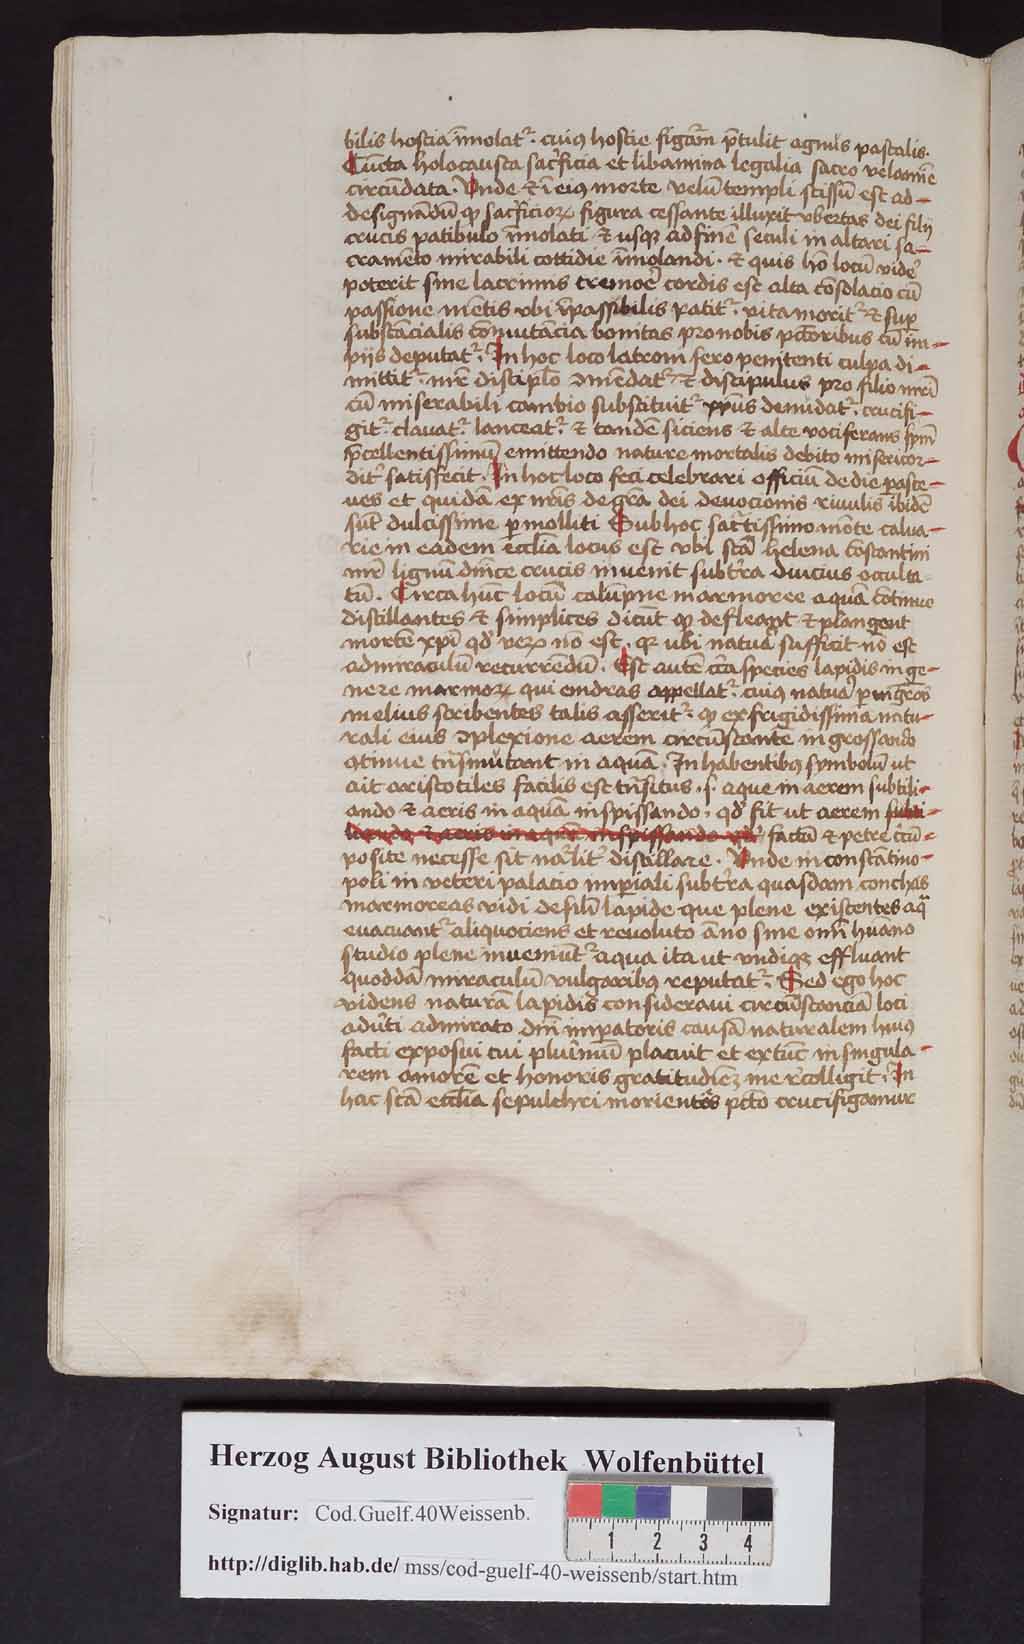 bilis hostia ī̄molatᷣ. cuiꝰ hostie figurā p̄tulit agnus pascalis.
Cuncta holocausta sacᷣficia et libamina legalia sacro velamīe
circūdata. Vnde ⁊ ī eiꝰ morte velū templi scissū est ad-
designādū ꝙ sacᷣficioꝝ figura cessante illuxit vbertas dei filij
crucis patibulo īmolati ⁊ usqꝫ ad finē seculi in altari sa-
cramēto mirabili cottidie īmolandi. ⁊ quis hō locū vidēᷣ
poterit sine lacrimis tremoᷣe cordis est alta cōsolacio cū
passione mētis vbi īpassibilis patitᷣ. vita moritᷣ ⁊ sup̄
substācialis comutācia bonitas pro nobis pctōribus cū im-
pijs deputatᷣ. In hoc loco latroni sero penitenti culpa di-
mittitᷣ. mr̄e discip̄lo ꝯmēdatᷣ ⁊ discipulus pro filio mr̄i
cū miserabili cambio substituitᷣ xp̄us denudatᷣ. crucifi-
gitᷣ. clauatᷣ. lanceatᷣ. ⁊ tandē siciens ⁊ alte vociferans sp̄m
p̄cellentissimū emittendo nature mortalis debito misericor-
ditᷣ satisfecit. In hoc loco feci celebrari officiū de die pasce-
ues et quidā ex nr̄is de gr̄a dei deuocionis riuulis ibidē
sūt dulcissime p̱molliti Sub hoc sac̄tissimo mōte calua-
rie in eadem eccl̄ia locus est vbi sc̄tā helena cōstantini
mr̄ lignū dn̄ice crucis inuenit subtᷣra diucius occulta-
tū. Circa hūc locū calūpne marmoree aquā cōtinue
distillantes ⁊ simplices dicūt ꝙ defleant ⁊ plangent
mortē xp̄i qd̄ veꝝ nō est. qꝛ ubi natuᷓa sufficit nō est
ad miraculū recurrēdū. Est autē cᷣta species lapidis in ge-
nere marmoꝝ qui emdras appellatᷣ. cuiꝰ natuᷓa p̱ ingᷣos
melius scribentes talis asseritᷣ. ꝙ ex frigidissima natu-
rali eius ꝯplexione aerem circūstantē ingrossando
ꝯtinue trāsmutant in aquā. In habentibꝰ symbolū ut
ait aristotiles facilis est trāsitus. s. aque in aerem subtili-
ando ⁊ aeris in aquā inspissando. qd̄ fit ut aerem subti-
liando ⁊ aeris in aquā inspissando qd̄ factā ⁊ petre cᷓcū-
posite necesse sit naᷣlitᷣ distillare. Vnde in constātino-
poli in veteri palacio imp̱iali subtᷣra quasdam conchas
marmoreas vidi de sili lapide que plene existentes aqᷓ
euacuantᷣ aliquociens et reuoluto āno sine omī hūano
studio plene inueniūtᷣ aqua ita ut vndiqꝫ effluant
quoddā miraculū vulgaribꝰ reputatᷣ. Sed ego hoc
videns naturā lapidis consideraui circūstanciā loci
aduᷣti admirato dn̄i imp̱atoris causā naturalem huiꝰ
facti exposui cui plurimū placuit et ex tūc in singula-
rem amorē et honoris gratitudiēꝫ me rᷣcolligit. In
hac sctā eccl̄ia sepulchri morientēs pctō crucifigamur
Herzog August Bibliothek Wolfenbüttel
Signatur: Cod.Guelf.40Weissenb.
http://diglib.hab.de/ mss/cod-guelf-40-weissenb/start.htm
1 2 3 4